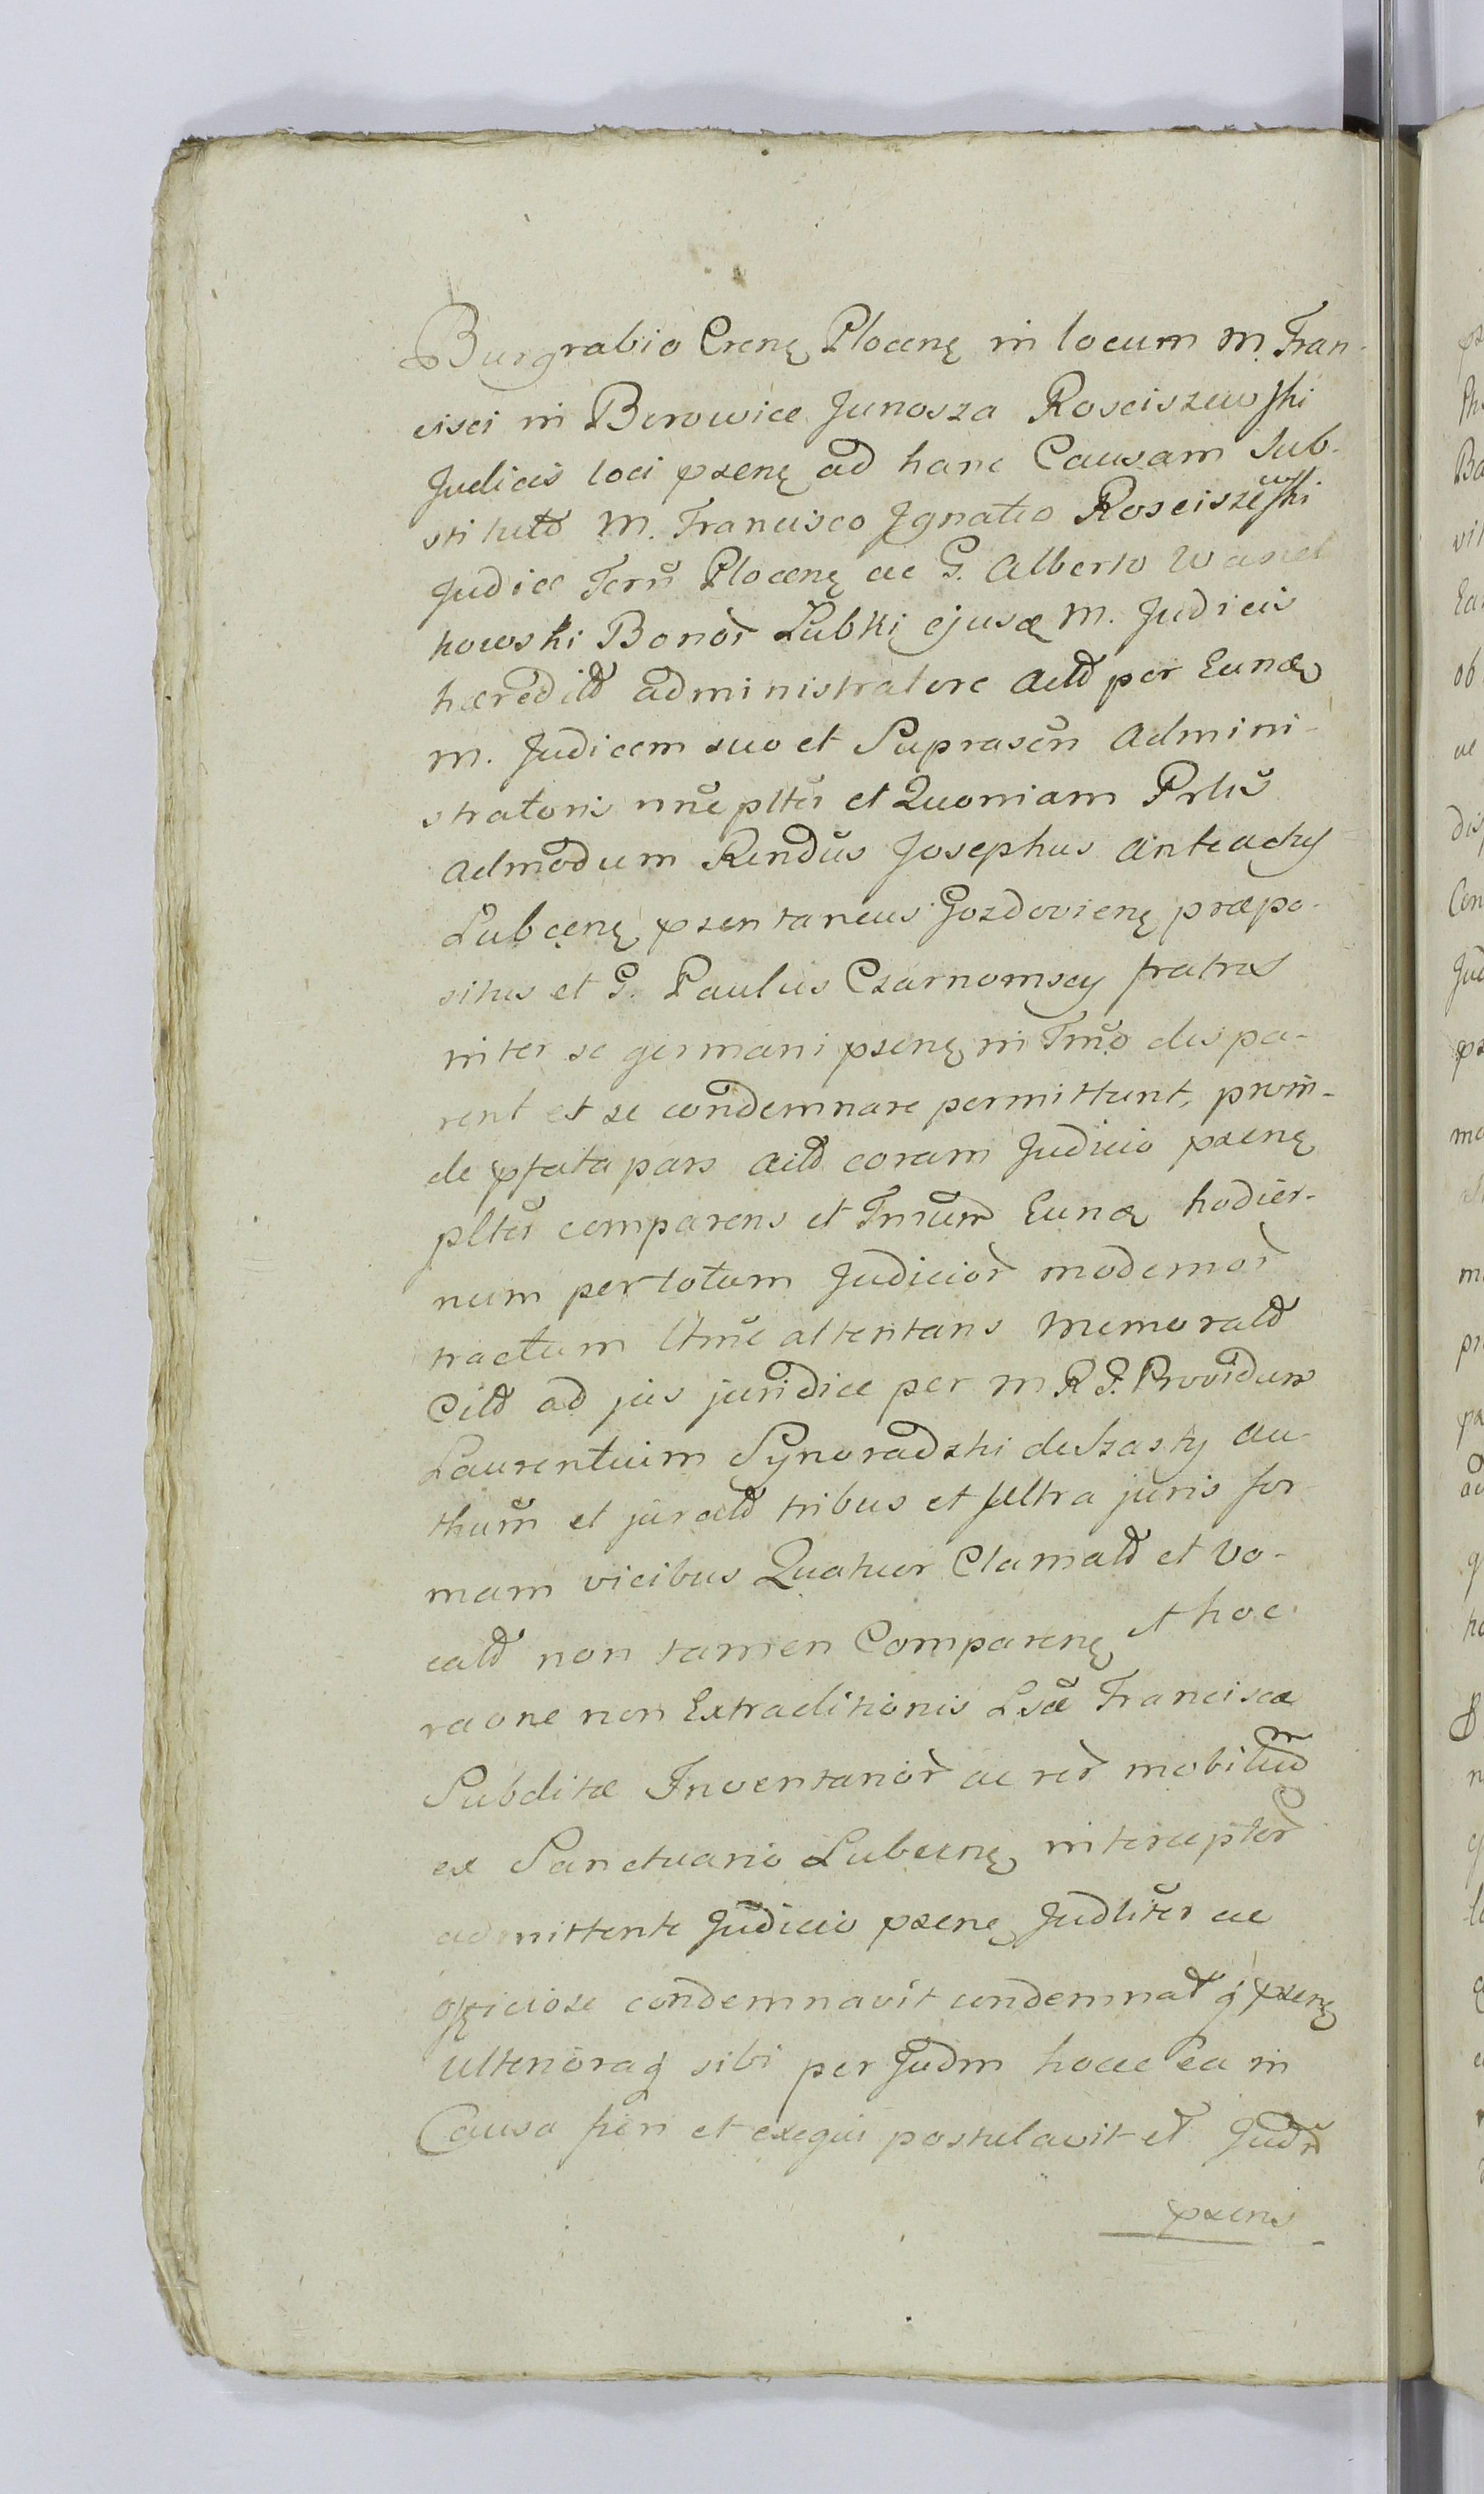 Burgrabio Crenę Plocenę in locum M. Fran-
cisci in Borowice Junosza Rosciszewski
Judicis loci pxenę ad hanc Causam Sub-
stitutō M. Francisco Ignatio Rosciszewski
Judice Terrn̄ Plocenę ac G. Alberto Wasiel
kowski Bonor̄ Lubki ejusd M. Judicis
hæreditō administratore Actō per Eunđ
M. Judicem suo et Suprascrn̄ Admini-
stratoris nn̄e pltēr et Quoniam Prlīs
Admodum Rendūs Josephus Anteactus
Lubcenę pxentaneus Gozdovienę præpo-
situs et G. Paulus Czarnomscy fratres
inter se germani pxenę in Tmn̄o dispa-
rent et se condemnare permittunt, proin-
de pfata pars Actō coram Judicio pxenę
pltēr comparens et Tmn̄um Eunđ hodier-
num per totum Judicior̄ modernor̄
tractum ltmē attentans memoratō
Citō ad jus juridice per M R G. Providum
Laurentium Synoradzki de Szasty au-
thum̄ et juratō tribus et ultra juris for
mam vicibus Quatuor Clamatō et Vo-
catō non tamen Comparenę et hoc
raōne non Extraditionis Lsæ Franciscæ
Subditæ Inventarior̄ ac rer̄ mobilium
ex Sanctuario Lubcenę interceptor̄
admittente Judicio pxenę Judlitēr ac
officiose condemnavit condemnatq pxenę
Ulterioraq sibi per Judm hocce Ea in
Causa fieri et exequi postulavit et Judm̄
pxens